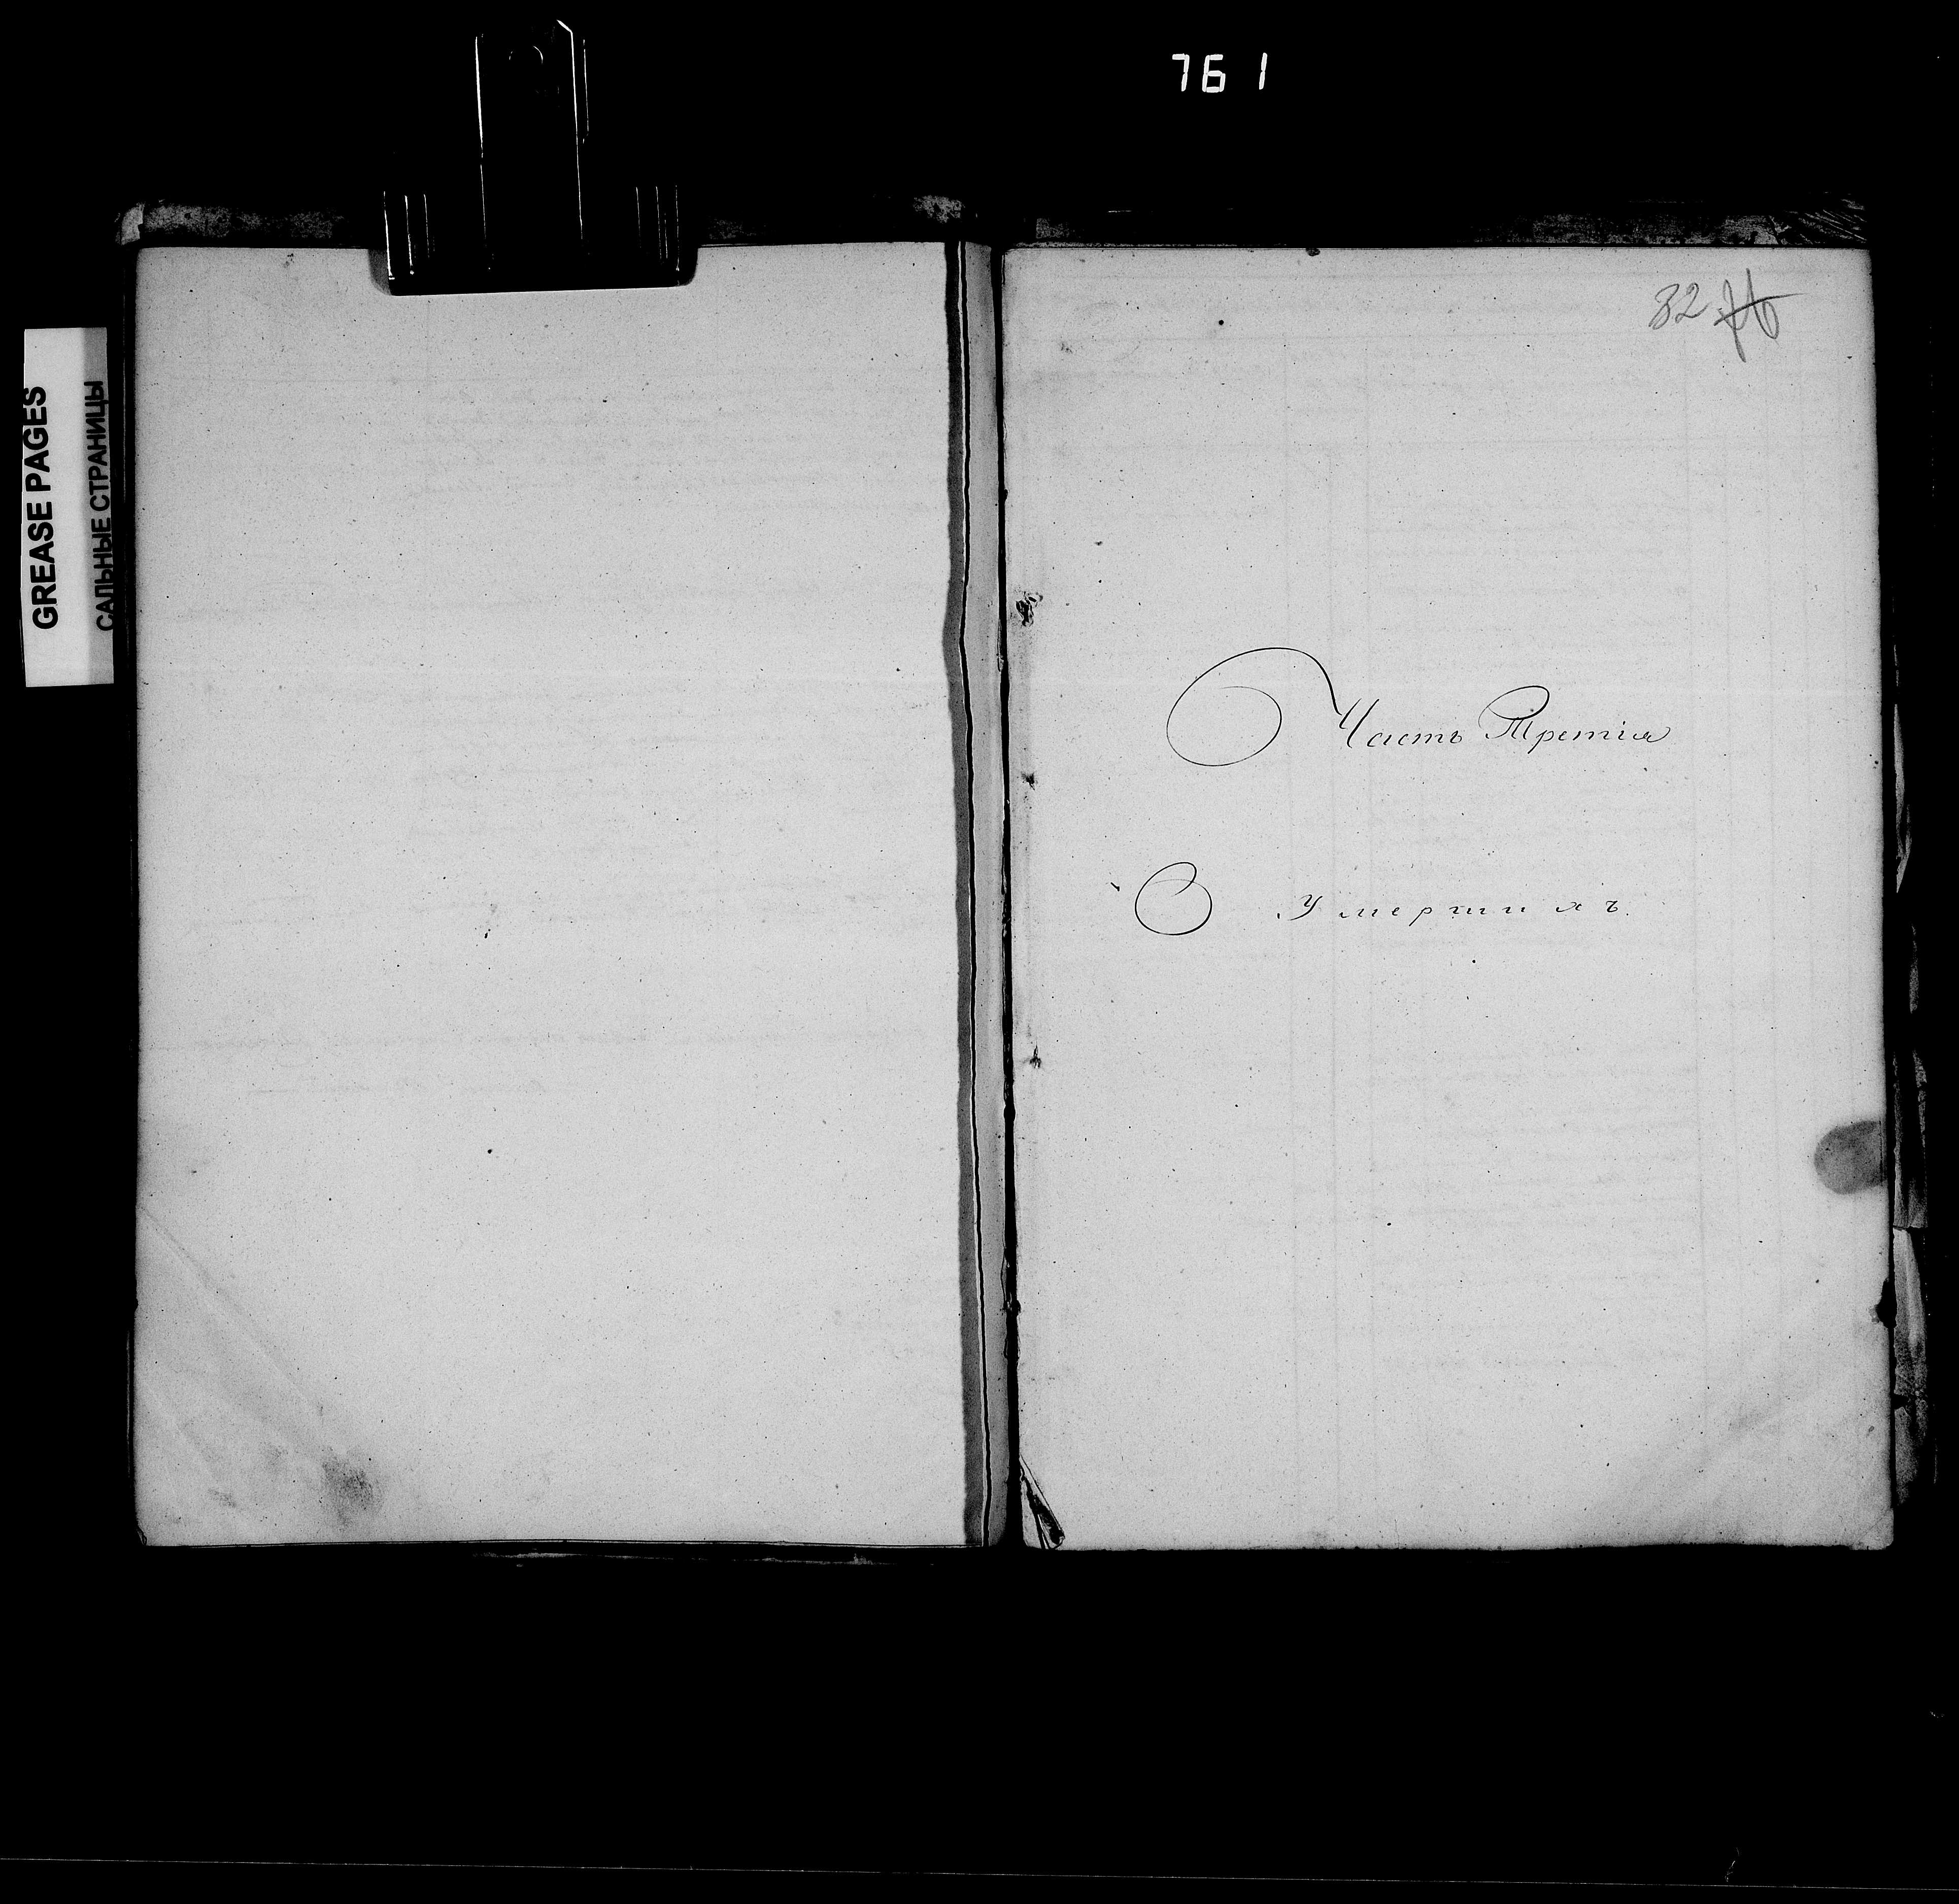 761
GREASE PAGES
САЛЬНЫЕ СТРАНИЦЫ
32
Часть Третія
О Умершихъ.